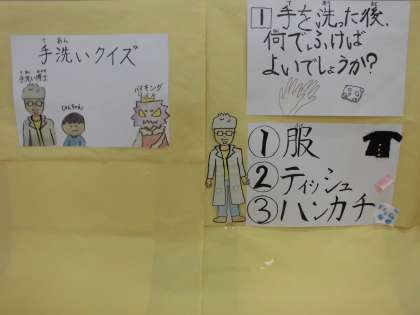 手洗いクイズ
手洗い博士
じゃんちゃん
バイキング
1 手を洗った後、
何でふけば
よいでしょうか?
①服
②ティッシュ
③ハンカチ